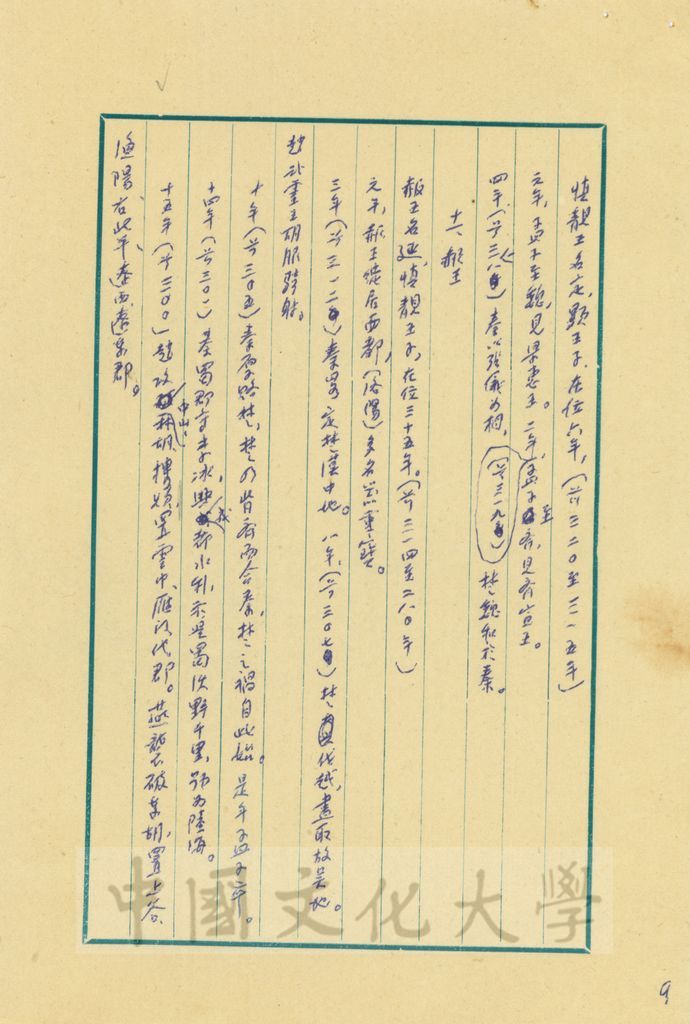 慎靚王名定,顯王子,在位六年,(前三二〇至三一五年)
元年,孟子至魏,見梁惠王。二年,孟子至齊,見齊宣王。
四年,(前三一八)秦以張儀為相,(前三一九)楚魏和於秦。
十六 赧王
赧王名延,慎靚王子,在位三十五年。(前三一四至二八〇年)
元年,赧王徙居西都,(洛陽)多名器重寶。
三年(前三一二)秦略定楚漢中地。八年,(前三〇七)楚伐越,盡取故吳地。
趙武靈王胡服騎射。
十年(前三〇五)秦厚賂楚,楚乃背齊而合秦,楚之禍自此始。是年孟子卒。
十四年(前三〇一)秦蜀郡守李冰,興成都水利,於是蜀沃野千里,號為陸海。
十五年(前三〇〇)趙攻中山、林胡、樓煩,置雲中、雁門、代郡。燕襲破東胡,置上谷、
漁陽、右北平、遼西、遼東郡。
9
中國文化大學